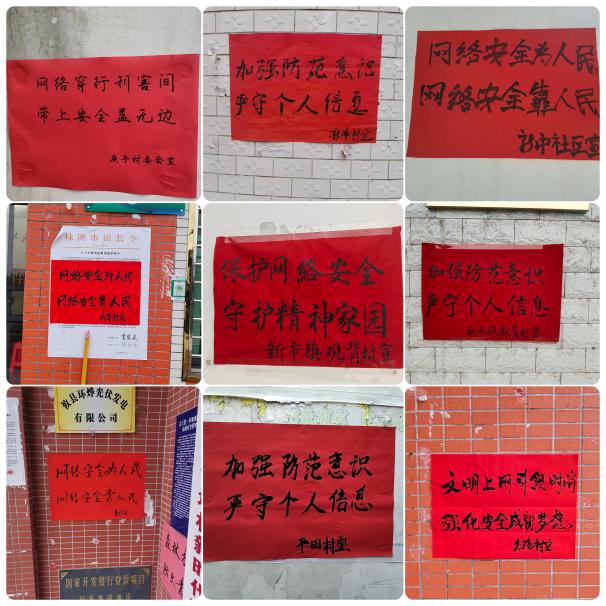 网络穿行利害间
带上安全益无边
庚子村委会宣
加强防范意识
严守个人信息
新市村宣
网络安全为人民
网络安全靠人民
新中社区宣
株洲市田长令
网络安全为人民
网络安全靠人民
保护网络安全
守护精神家园
新市镇观背村宣
加强防范意识
严守个人信息
新市镇观背村宣
攸县环烨光伏发电
有限公司
网络安全为人民
网络安全靠人民
国家开发银行贷款项目
加强防范意识
严守个人信息
平田村宣
文明上网引领时尚
强化安全成就梦想